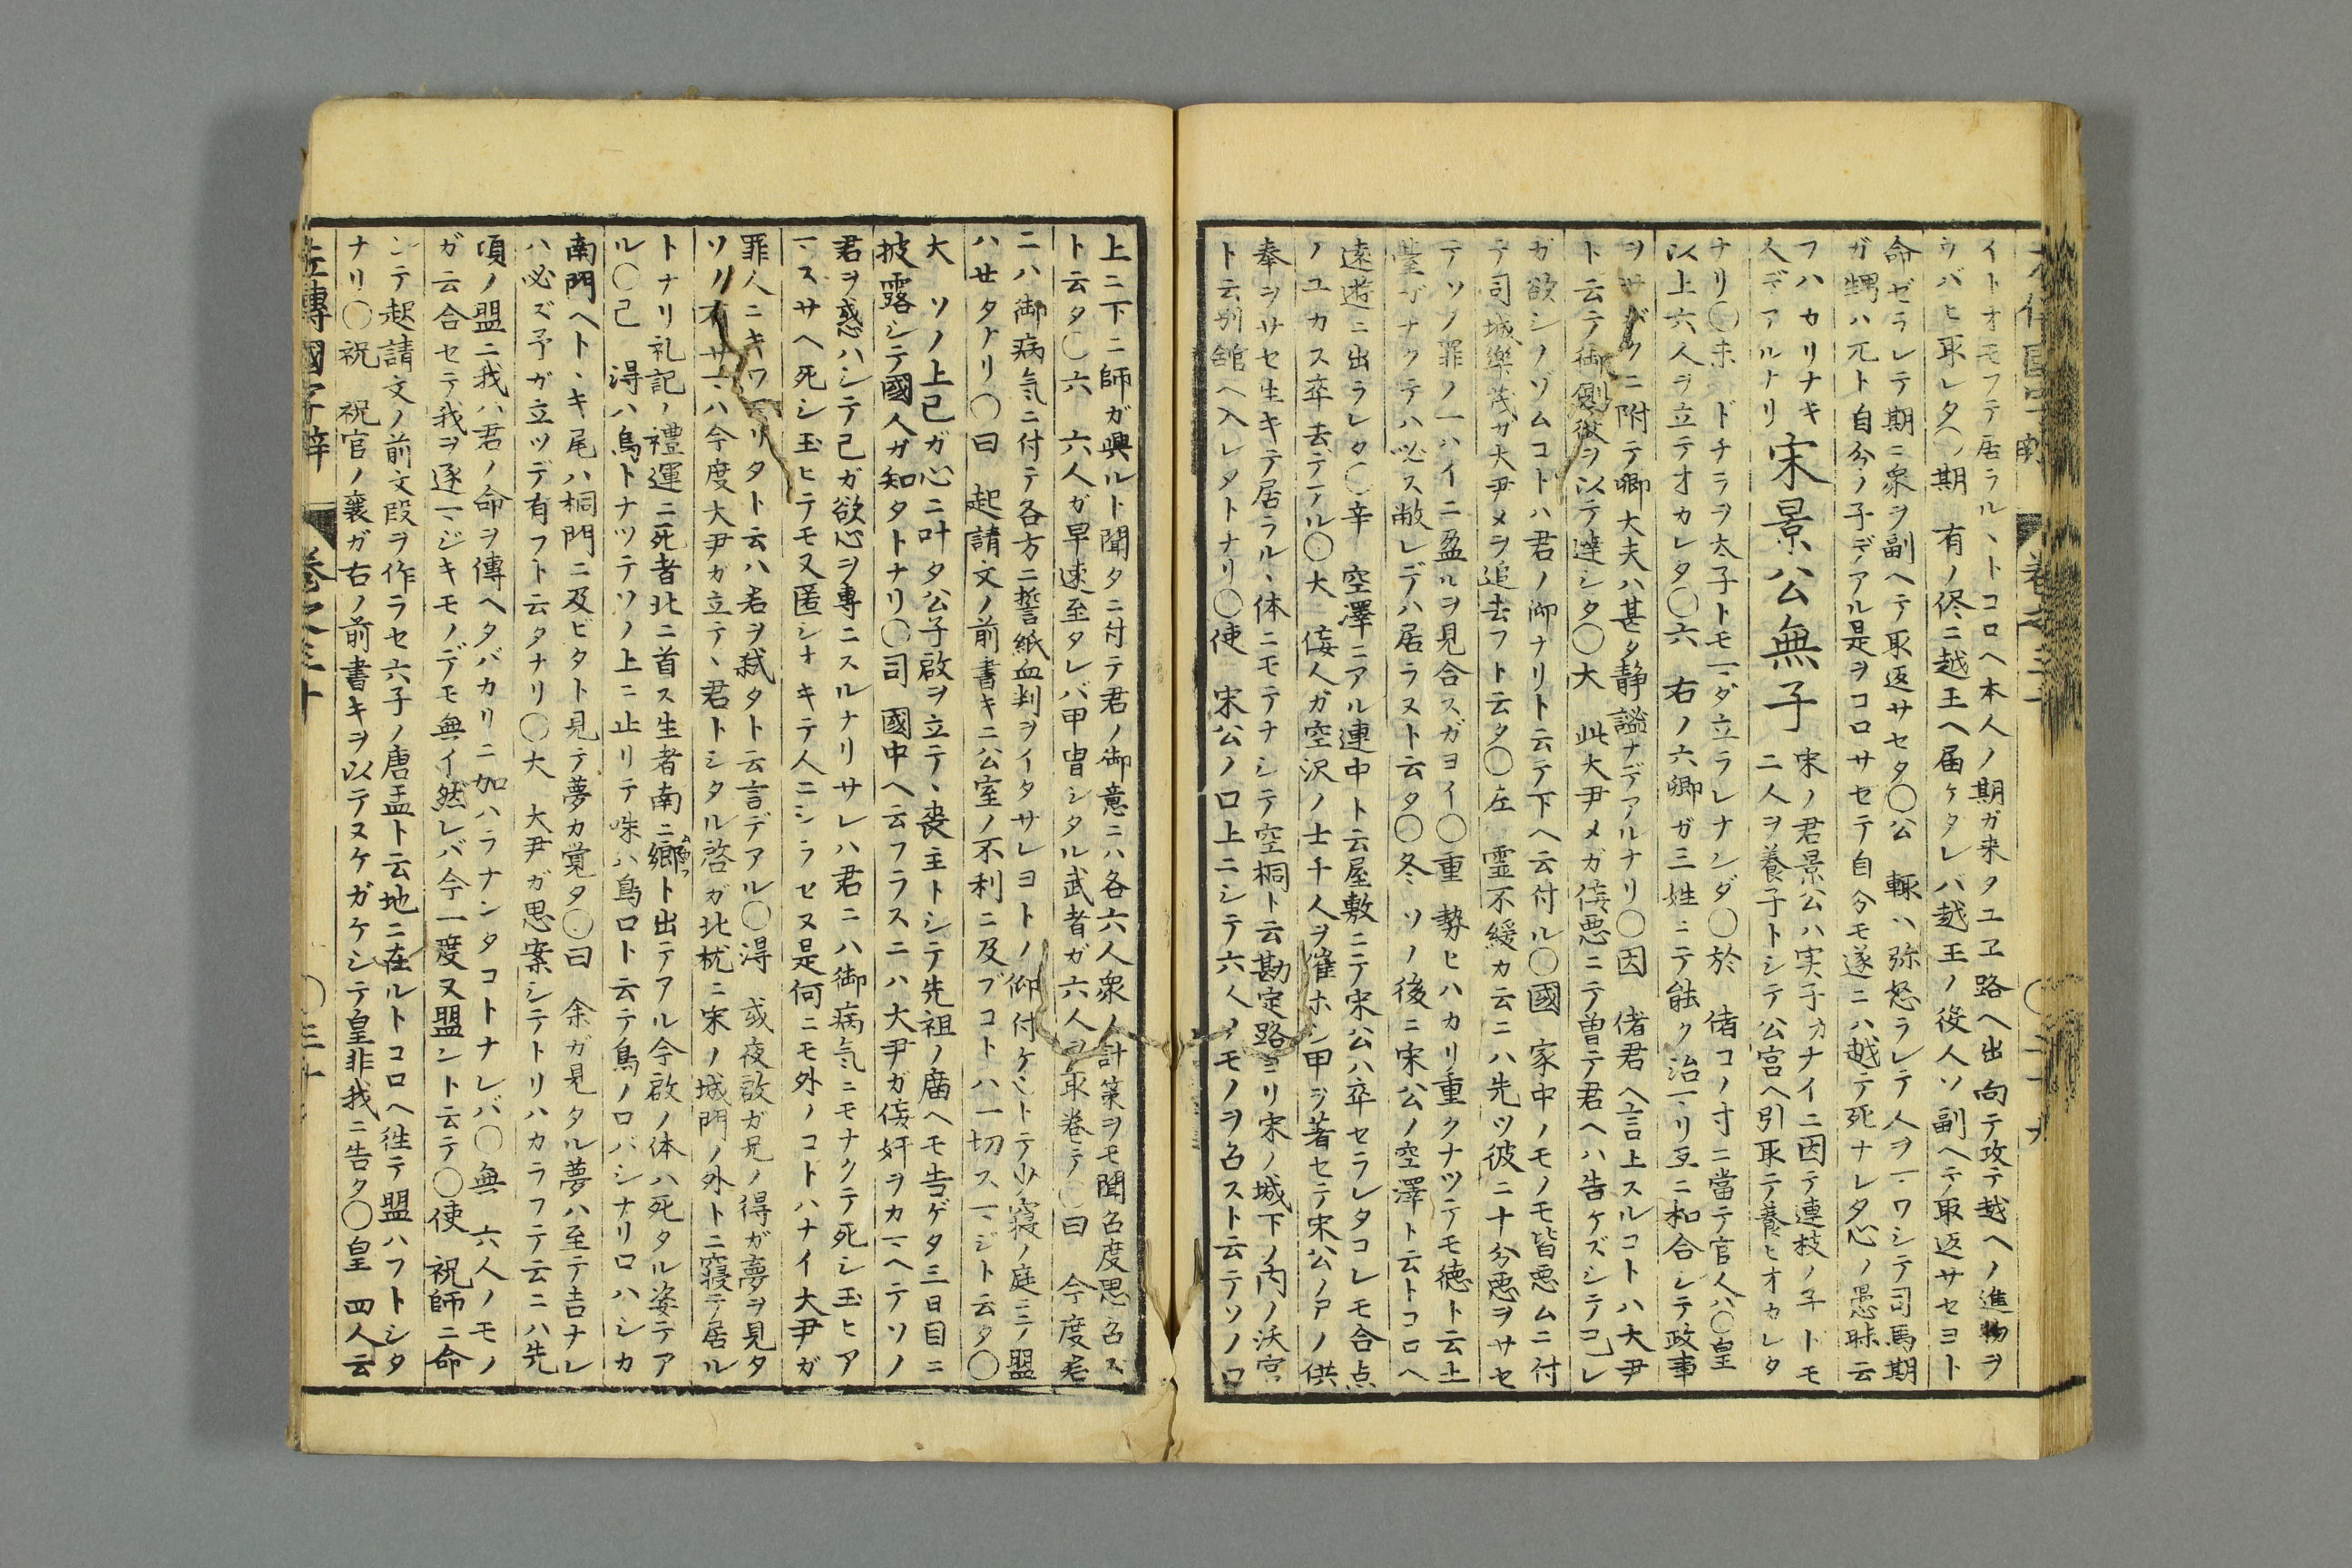 イトオモフテ居ラル丶トコロヘ本人ノ期ガ来タユヱ路ヘ出向テ攻テ越ヘノ進物ヲ
ウバヒ取レタ〇期 有ノ侭ニ越王ヘ届ケタレバ越王ノ役人ソ副ヘテ取返サセヨト
命ゼラレテ期ニ衆ヲ副ヘテ取返サセタ〇公 輙ハ弥怒ラレテ人ヲマワシテ司馬期
ガ甥ハ元ト自分ノ子デアル是ヲコロサセテ自分モ遂ニハ越テ死ナレタ心ノ愚昧云
フハカリナキ
人デアルナリ
宋景公無子
宋ノ君景公ハ実子カナイニ因テ連枝ノ子トモ
二人ヲ養子トシテ公宮ヘ引取テ養ヒオカレタ
ナリ〇未 ドチラヲ太子トモマダ立ラレナンダ〇於 偖コノ寸ニ當テ官人ハ〇皇
以上六人ヲ立テオカレタ〇六 右ノ六卿ガ三姓ニテ能ク治マリ互ニ和合シテ政事
ト云テ御側役ヲ以テ達シタ〇大 此大尹メガ侫悪ニテ曽テ君ヘハ告ケズシテコレ
ガ欲シノゾムコトハ君ノ御ナリト云テ下ヘ云付ル〇國 家中ノモノモ皆悪ムニ付
テ司城樂茂ガ大尹メヲ追去フト云タ〇左 霊不緩カ云ニハ先ツ彼ニ十分悪ヲサセ
テソノ罪ノ一ハイニ盈ルヲ見合スガヨイ〇重 勢ヒハカリ重クナツテモ徳ト云上
臺ガナクテハ必ス敝レデハ居ラヌト云タ〇冬 ソノ後ニ宋公ノ空澤ト云トコロヘ
遠遊ニ出ラレタ〇辛 空澤ニアル連中ト云屋敷ニテ宋公ハ卒セラレタコレモ合点
ノユカス卒去デアル〇大 侫人ガ空沢ノ士千人ヲ催ホシ甲ヲ著セテ宋公ノアノ供
奉ヲサセ生キテ居ラル丶体ニモテナシテ空桐ト云勘定路ヨリ宋ノ城下ノ内ノ沃宮
ト云別舘ヘ入レタトナリ〇使 宋公ノ口上ニシテ六人ノモノヲ召スト云テソノ口
上ニ下ニ師ガ興ルト聞タニ付テ君ノ御意ニハ各六人衆ノ計策ヲモ聞召度思召ズ
ト云タ〇六 六人ガ早速至タレバ甲冑シタル武者ガ六人ヲ取巻テ〇曰 今度君
ニハ御病気ニ付テ各方ニ誓紙血判ヲイタサレヨトノ仰付ケトテ少寝ノ庭ニテ盟
ハセタナリ〇曰 起請文ノ前書キニ公室ノ不利ニ及ブコトハ一切スマジト云タ〇
大 ソノ上己ガ心ニ叶タ公子啟ヲ立テ丶喪主トシテ先祖ノ廟ヘモ告ゲタ三日目ニ
披露シテ國人ガ知タトナリ〇司 國中ヘ云フラスニハ大尹ガ侫奸ヲカマヘテソノ
君ヲ惑ハシテ己ガ欲心ヲ專ニスルナリサレハ君ニハ御病気ニモナクテ死シ玉ヒア
マスサヘ死シ玉ヒテモ又匿シオキテ人ニシラセヌ是何ニモ外ノコトハナイ大尹ガ
罪人ニキワマリタト云ハ君ヲ弑タト云言デアル〇得 或夜啟ガ兄ノ得ガ夢ヲ見タ
ハ今度大尹ガ立テ丶君トシタル啓ガ北枕ニ宋ノ城門ノ外トニ寝テ居ル
トナリ礼記ノ禮運ニ死者北ニ首ス生者南ニ郷ト出テアル今啟ノ体ハ死タル姿テア
ル〇己 得ハ烏トナツテソノ上ニ止リテ咮ハ鳥口ト云テ鳥ノロバシナリ口ハシカ
南門ヘトヾキ尾ハ桐門ニ及ビタト見テ夢カ覚タ〇曰 余ガ見タル夢ハ至テ吉ナレ
ハ必ズ予ガ立ツデ有フト云タナリ〇大 大尹ガ思案シテトリハカラフテ云ニハ先
頃ノ盟ニ我ハ君ノ命ヲ傳ヘタバカリニ加ハラナンタコトナレバ〇無 六人ノモノ
ガ云合セテ我ヲ逐マジキモノデモ無イ然レバ今一度又盟ント云テ〇使 祝師ニ命
シテ起請文ノ前文段ヲ作ラセ六子ノ唐盂ト云地ニ在ルトコロヘ往テ盟ハフトシタ
ナリ〇祝 祝官ノ襄ガ右ノ前書キヲ以テヌケガケシテ皇非我ニ告ク〇皇 四人云
左傳國字辯 巻之三十